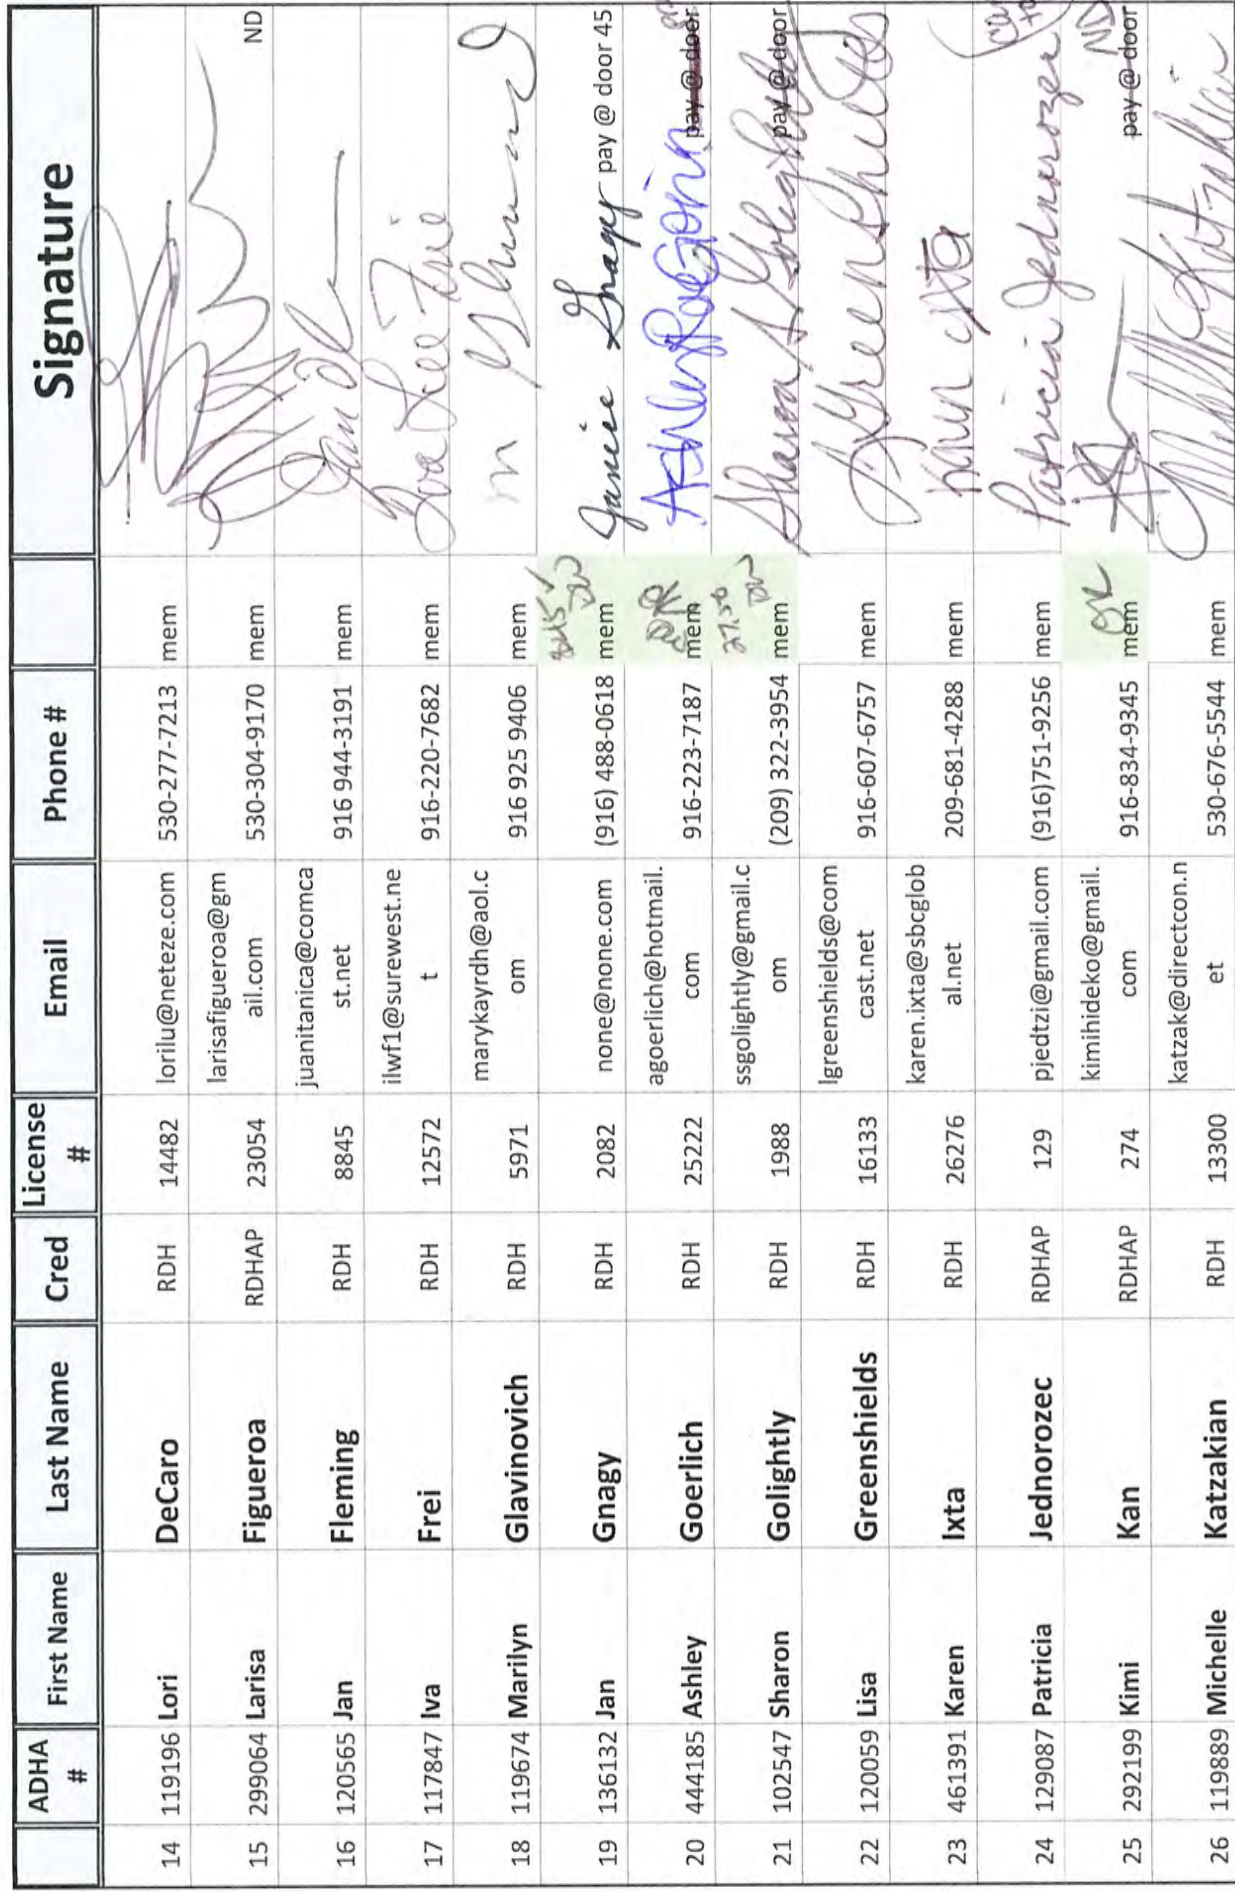 ADHA # First Name Last Name Cred License # Email Phone # Signature
14 119196 Lori DeCaro RDH 14482 lorilu@neteze.com 530-277-7213 mem
15 299064 Larisa Figueroa RDHAP 23054 larisafigueroa@gm
ail.com 530-304-9170 mem ND
16 120565 Jan Fleming RDH 8845 juanitanica@comca
st.net 916 944-3191 mem
17 117847 Iva Frei RDH 12572 ilwf1@surewest.ne
t 916-220-7682 mem
18 119674 Marilyn Glavinovich RDH 5971 marykayrdh@aol.c
om 916 925 9406 mem
19 136132 Jan Gnagy RDH 2082 none@none.com (916) 488-0618 mem Janice Gnagy pay @ door 45
20 444185 Ashley Goerlich RDH 25222 agoerlich@hotmail.
com 916-223-7187 mem pay @ door
21 102547 Sharon Golightly RDH 1988 ssgolightly@gmail.c
om (209) 322-3954 mem 27.50 Sharon S Golightly pay @ door
22 120059 Lisa Greenshields RDH 16133 lgreenshields@com
cast.net 916-607-6757 mem LGreenshields
23 461391 Karen Ixta RDH 26276 karen.ixta@sbcglob
al.net 209-681-4288 mem
24 129087 Patricia Jednorozec RDHAP 129 pjedtzi@gmail.com (916)751-9256 mem Patricia Jednorozec
25 292199 Kimi Kan RDHAP 274 kimihideko@gmail.
com 916-834-9345 mem ND pay @ door
26 119889 Michelle Katzakian RDH 13300 katzak@directcon.n
et 530-676-5544 mem